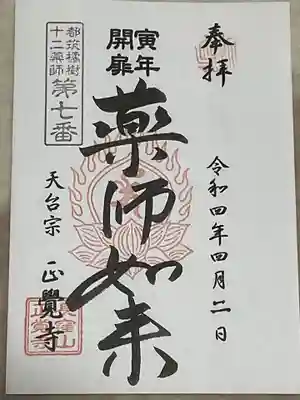 奉拝
令和四年四月二日
寅年
開扉
薬師如来
都筑橘樹
十二薬師
第七番
天台宗 正覺寺